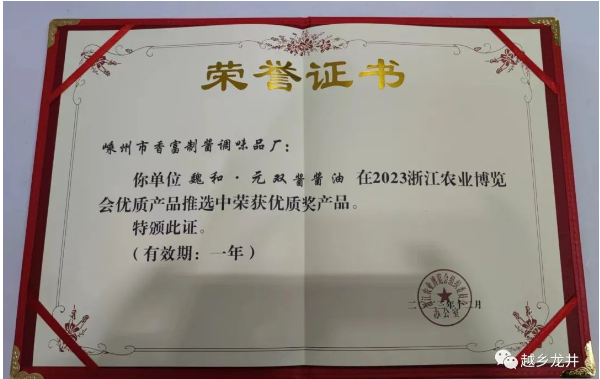 荣誉证书
嵊州市香富制酱调味品厂：
你单位 魏和·元双酱酱油 在2023浙江农业博览
会优质产品推选中荣获优质奖产品。
特颁此证。
（有效期：一年）
月
越乡龙井